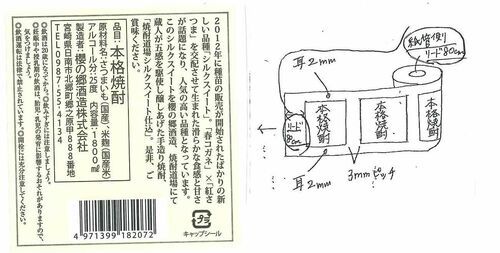 2012年に種苗の販売が開始されたばかりの新
しい品種「シルクスイート」。「春コガネ」×「紅さ
つま」を交配させて生まれた滑らかな食感と甘さ
が話題になり、人気の高い品種となっています。
このシルクスイートを櫻の郷酒造、焼酎道場にて
蔵人が五感を駆使し醸しあげた手造り焼酎
「焼酎道場シルクスイート仕込」。是非、ご
賞味ください。
品目:本格焼酎
原材料名:さつまいも(国産)、米麹(国産米)
アルコール分:25度 内容量:1800ml
製造者:櫻の郷酒造株式会社
宮崎県日南市北郷町郷之原甲888番地
TEL0987-55-4134
◎飲酒は20歳になってから。◎飲みすぎには注意しましょう。
◎妊娠中や授乳期の飲酒は、胎児・乳児の発育に影響するおそれがありますので、
気をつけましょう。
◎飲酒運転は法律で禁止されています。◎開栓には充分注意してください。
4 971399 182072
キャップシール
紙管便り
リード80cm
耳2mm
本格焼酎
本格焼酎
本格焼酎
リード
80cm
耳2mm
3mmピッチ